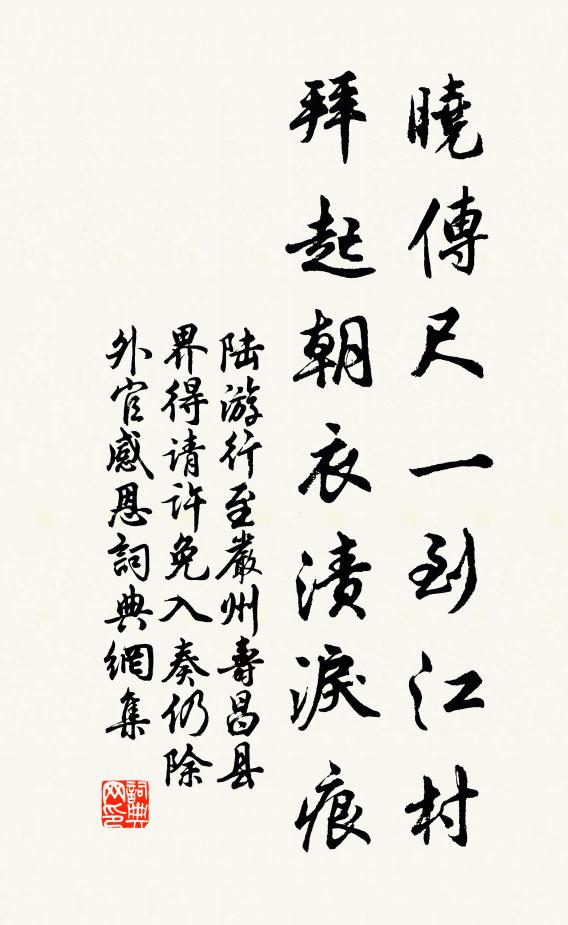 曉傳尺一到江村
拜起朝衣漬淚痕
陆游行至嚴州壽昌县
界得请許免入奏仍除
外官感恩詞典網集
詞典
网印